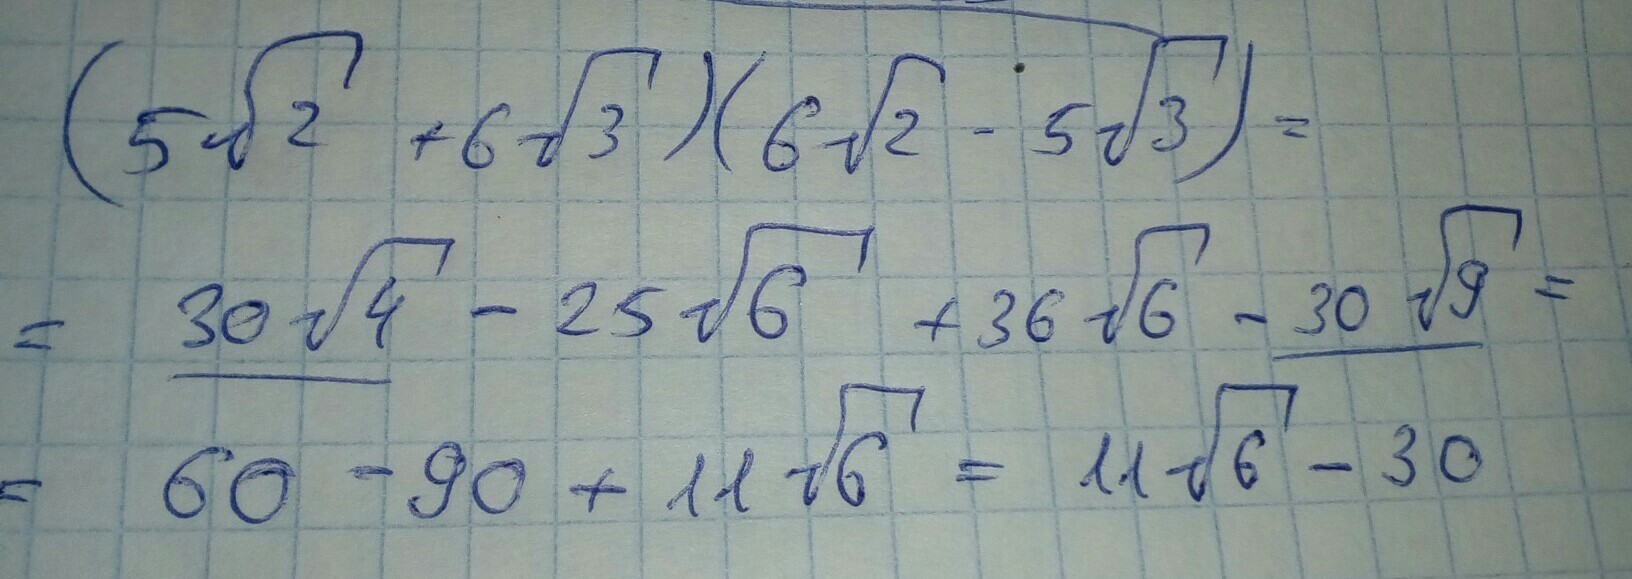 (5√2 + 6√3)(6√2 - 5√3) =
= 30√4 - 25√6 + 36√6 - 30√9 =
= 60 - 90 + 11√6 = 11√6 - 30